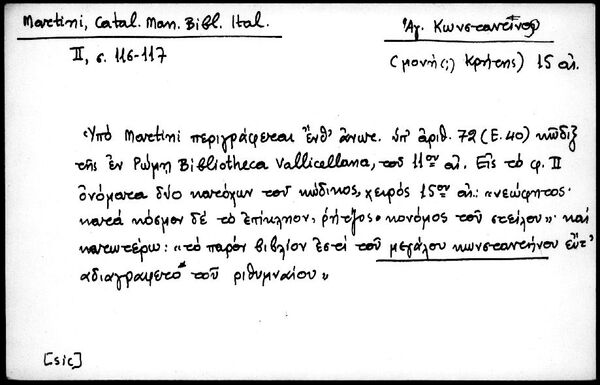 Martini, Catal. Man. Bibl. Ital.
II, σ. 116-117
Ἁγ. Κωνσταντῖνος
(μονή(;) Κρήτης) 15 αἰ.
Ὑπὸ Martini περιγράφεται ἔνθ' ἀνωτ. ὑπ' ἀριθ. 72 (E. 40) κῶδιξ
τῆς ἐν Ρώμῃ Bibliotheca Vallicellana, τοῦ 11ου αἰ. Εἰς τὸ φ. II
ὀνόματα δύο κατόχων τοῦ κώδικος, χειρὸς 15ου αἰ.: «νεώφητος
κατὰ κόσμον δὲ τὸ ἐπίκλην, κονόμος τοῦ στείλου» καὶ
κατωτέρω: «τὸ παρὸν βιβλίον ἐστὶ τοῦ μεγάλου κωνσταντήνου
τοῦ ριθυμναίου»
[sic]